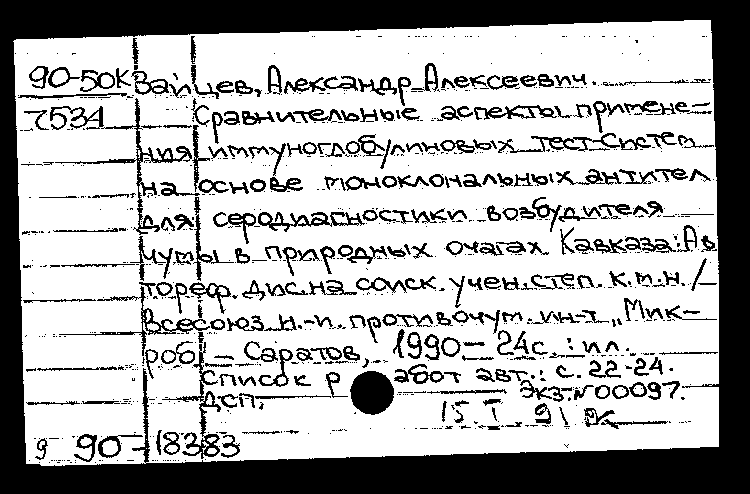 90-50К Зайцев, Александр Алексеевич.
7534 Сравнительные аспекты примене-
ния иммуноглобулиновых тест-систем
на основе моноклональных антител
для серодиагностики возбудителя
чумы в природных очагах Кавказа: Ав
тореф. дис. на соиск. учен. степ. к.м.н. /
Всесоюз. н.-и. противочум. ин-т „Мик-
роб". – Саратов, 1990. – 24с. : ил.
Список работ авт.: с. 22-24.
ДСП. Экз. N00097.
15.I.91
9 90-18383